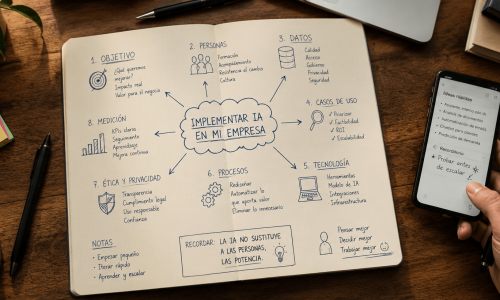 1. OBJETIVO
¿Qué queremos
mejorar?
Impacto real
Valor para el negocio
2. PERSONAS
Formación
Acompañamiento
Resistencia al cambio
Cultura
3. DATOS
Calidad
Acceso
Gobierno
Privacidad
Seguridad
8. MEDICIÓN
KPIs claros
Seguimiento
Aprendizaje
Mejora continua
IMPLEMENTAR IA
EN MI EMPRESA
4. CASOS DE USO
Priorizar
Factibilidad
ROI
Escalabilidad
7. ÉTICA Y PRIVACIDAD
Transparencia
Cumplimiento legal
Uso responsable
Confianza
6. PROCESOS
Rediseñar
Automatizar lo
que aporta valor
Eliminar lo innecesario
5. TECNOLOGÍA
Herramientas
Modelo de IA
Integraciones
Infraestructura
NOTAS
- Empezar pequeño
- Iterar rápido
- Aprender y escalar
RECORDAR: LA IA NO SUSTITUYE
A LAS PERSONAS,
LAS POTENCIA.
Pensar mejor
Decidir mejor
Trabajar mejor
Ideas rápidas
Probar antes
de escalar